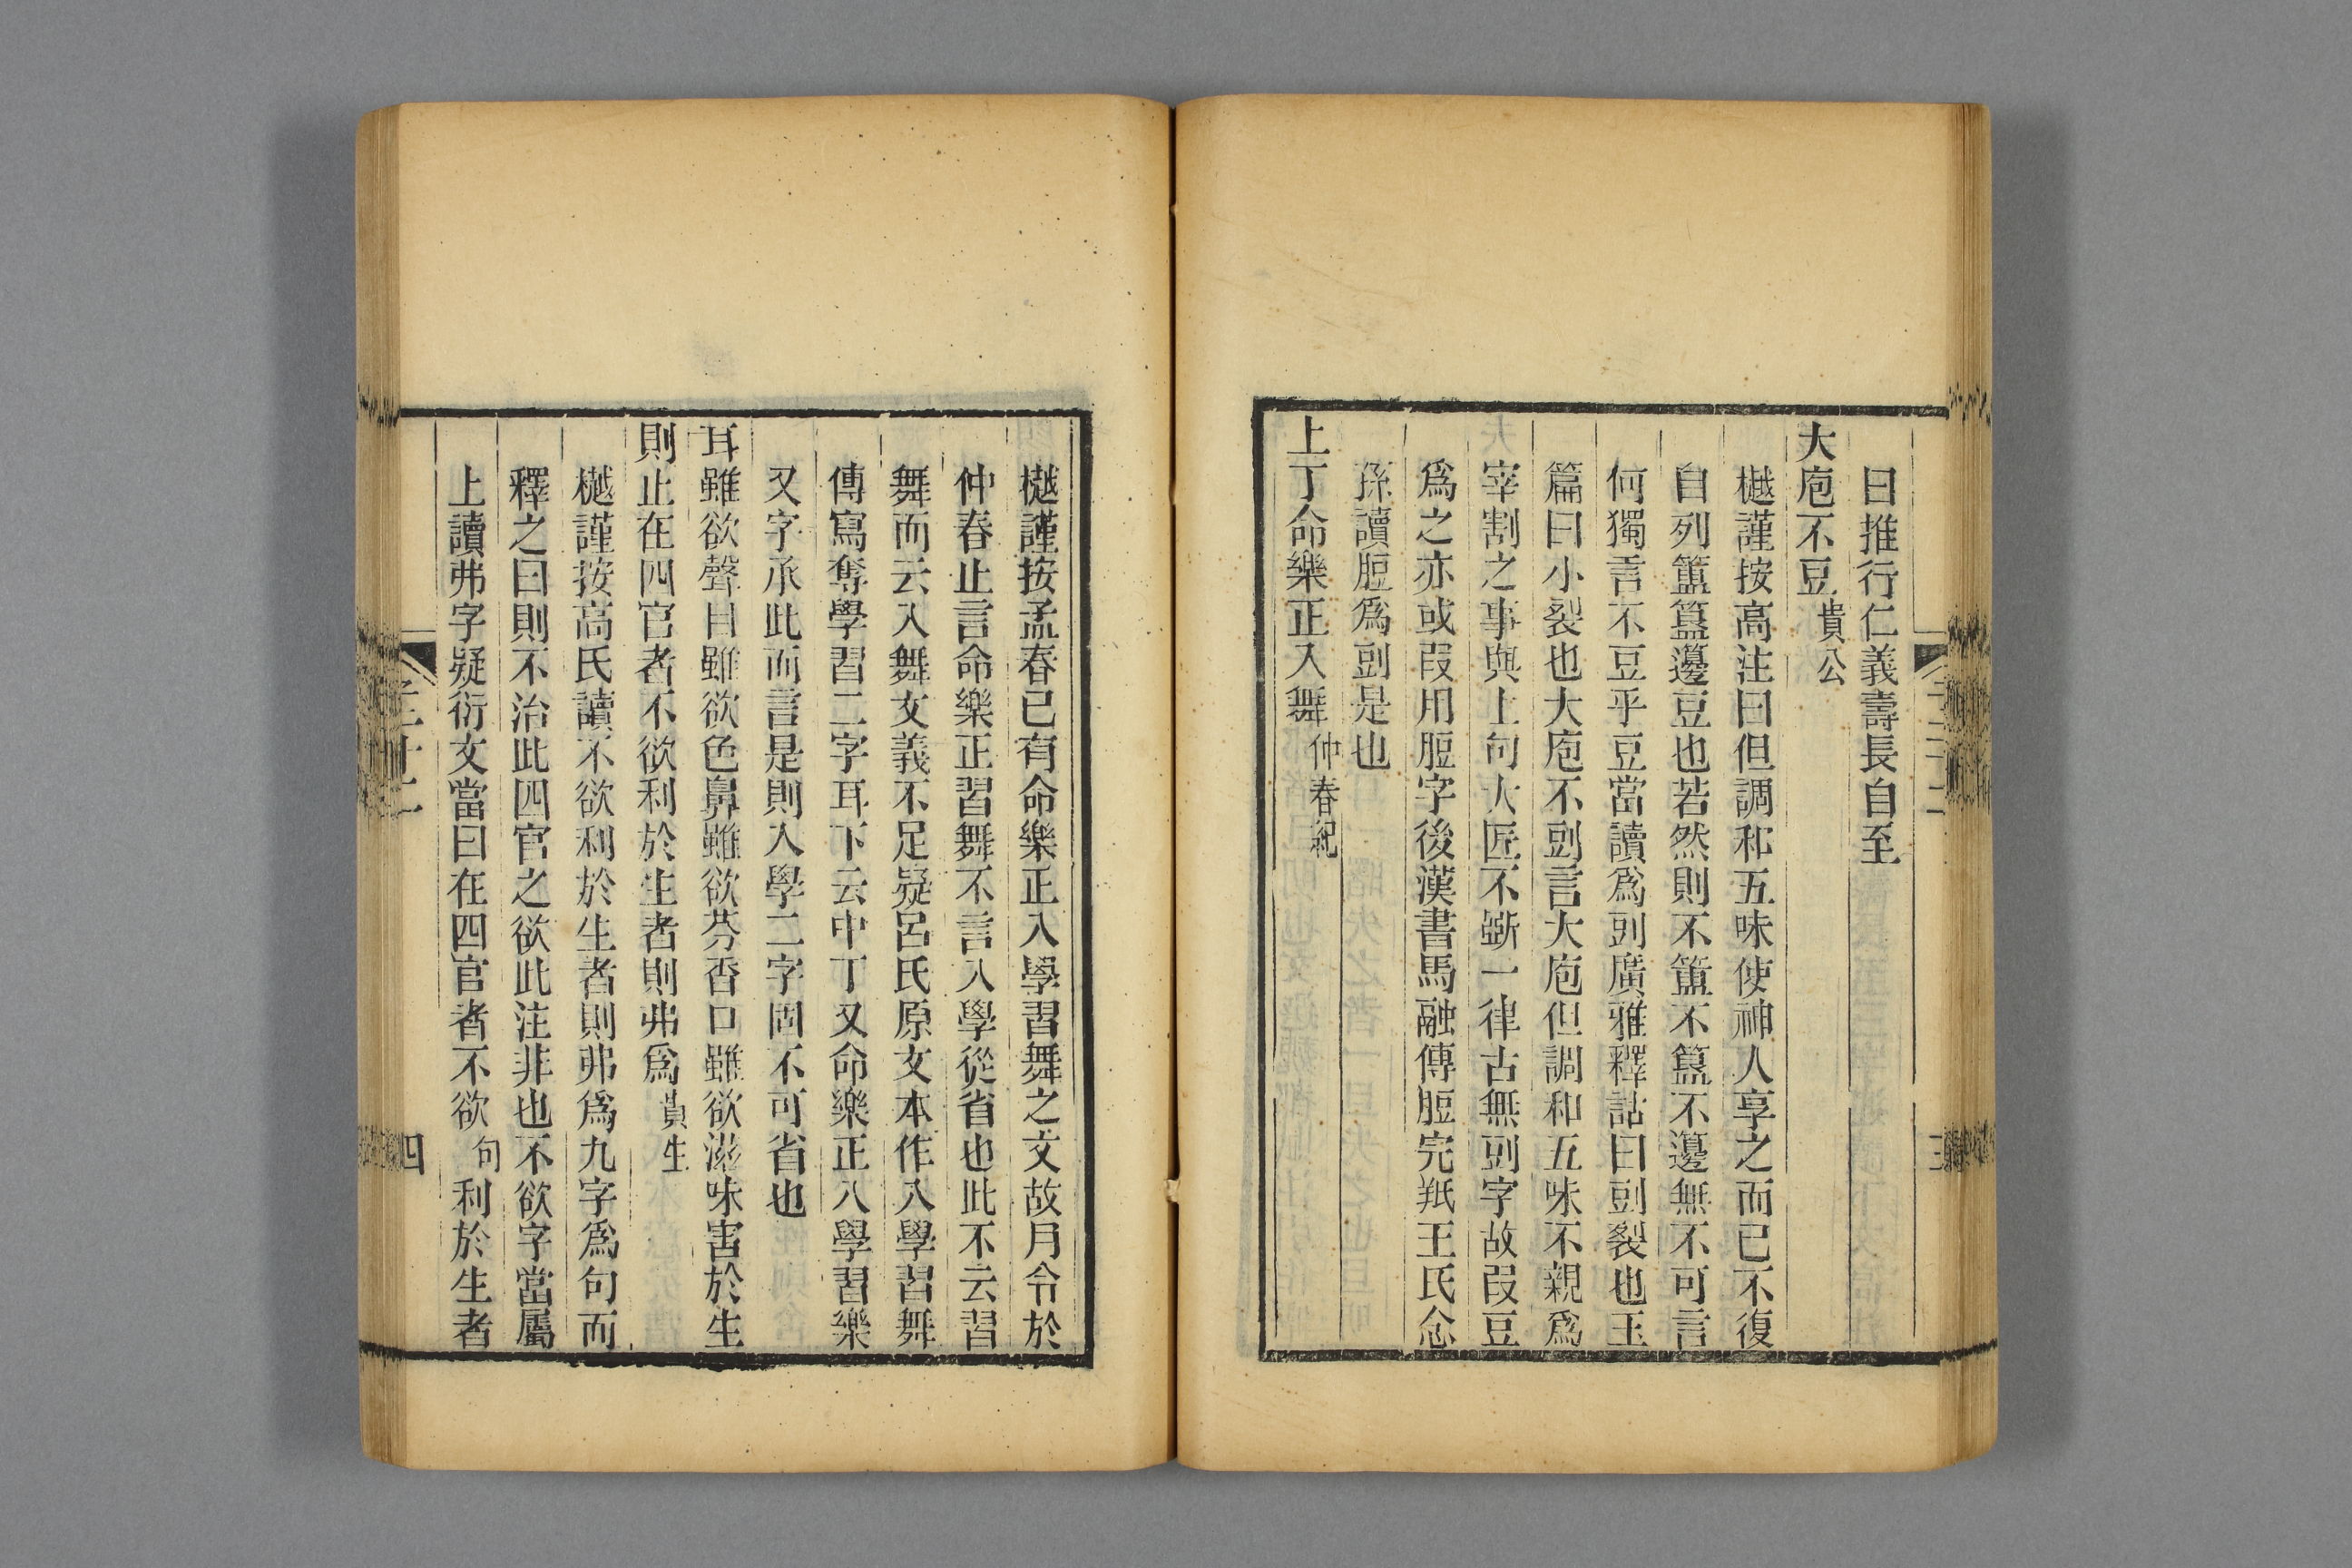 曰推行仁義壽長自至
大庖不豆貴公
樾謹按高注曰但調和五味使神人享之而已不復
自列簠簋籩豆也若然則不簠不簋不籩無不可言
何獨言不豆乎豆當讀爲剅廣雅釋詁曰剅裂也玉
篇曰小裂也大庖不剅言大庖但調和五味不親爲
宰割之事與上句大匠不斲一律古無剅字故叚豆
爲之亦或叚用脰字後漢書馬融傳脰完羝王氏念
孫讀脰爲剅是也
上丁命樂正入舞仲春紀
樾謹按孟春已有命樂正入學習舞之文故月令於
仲春止言命樂正習舞不言入學從省也此不云習
舞而云入舞文義不足疑呂氏原文本作入學習舞
傳寫奪學習二字耳下云中丁又命樂正入學習樂
又字承此而言是則入學二字固不可省也
耳雖欲聲目雖欲色鼻雖欲芬香口雖欲滋味害於生
則止在四官者不欲利於生者則弗爲貴生
樾謹按高氏讀不欲利於生者則弗爲九字爲句而
釋之曰則不治此四官之欲此注非也不欲字當屬
上讀弗字疑衍文當曰在四官者不欲句利於生者
四